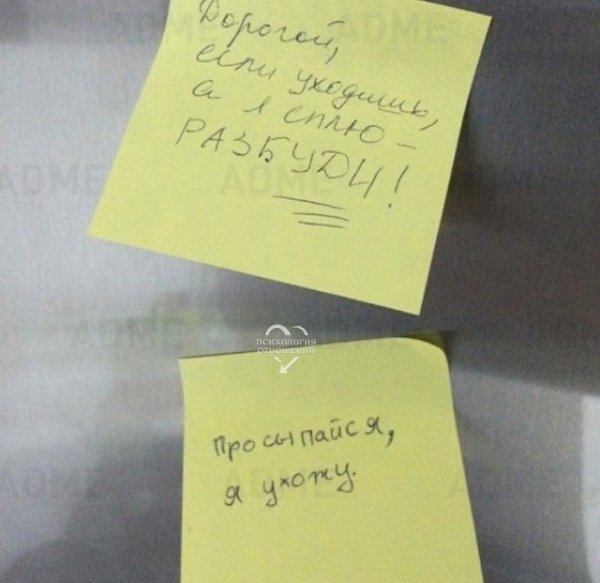 Дорогой,
если уходишь,
а я сплю —
РАЗБУДИ!
ПСИХОЛОГИЯ
ОТНОШЕНИЙ
Просыпайся,
я ухожу.
ADME
ADME
ADME
ADME
ADME